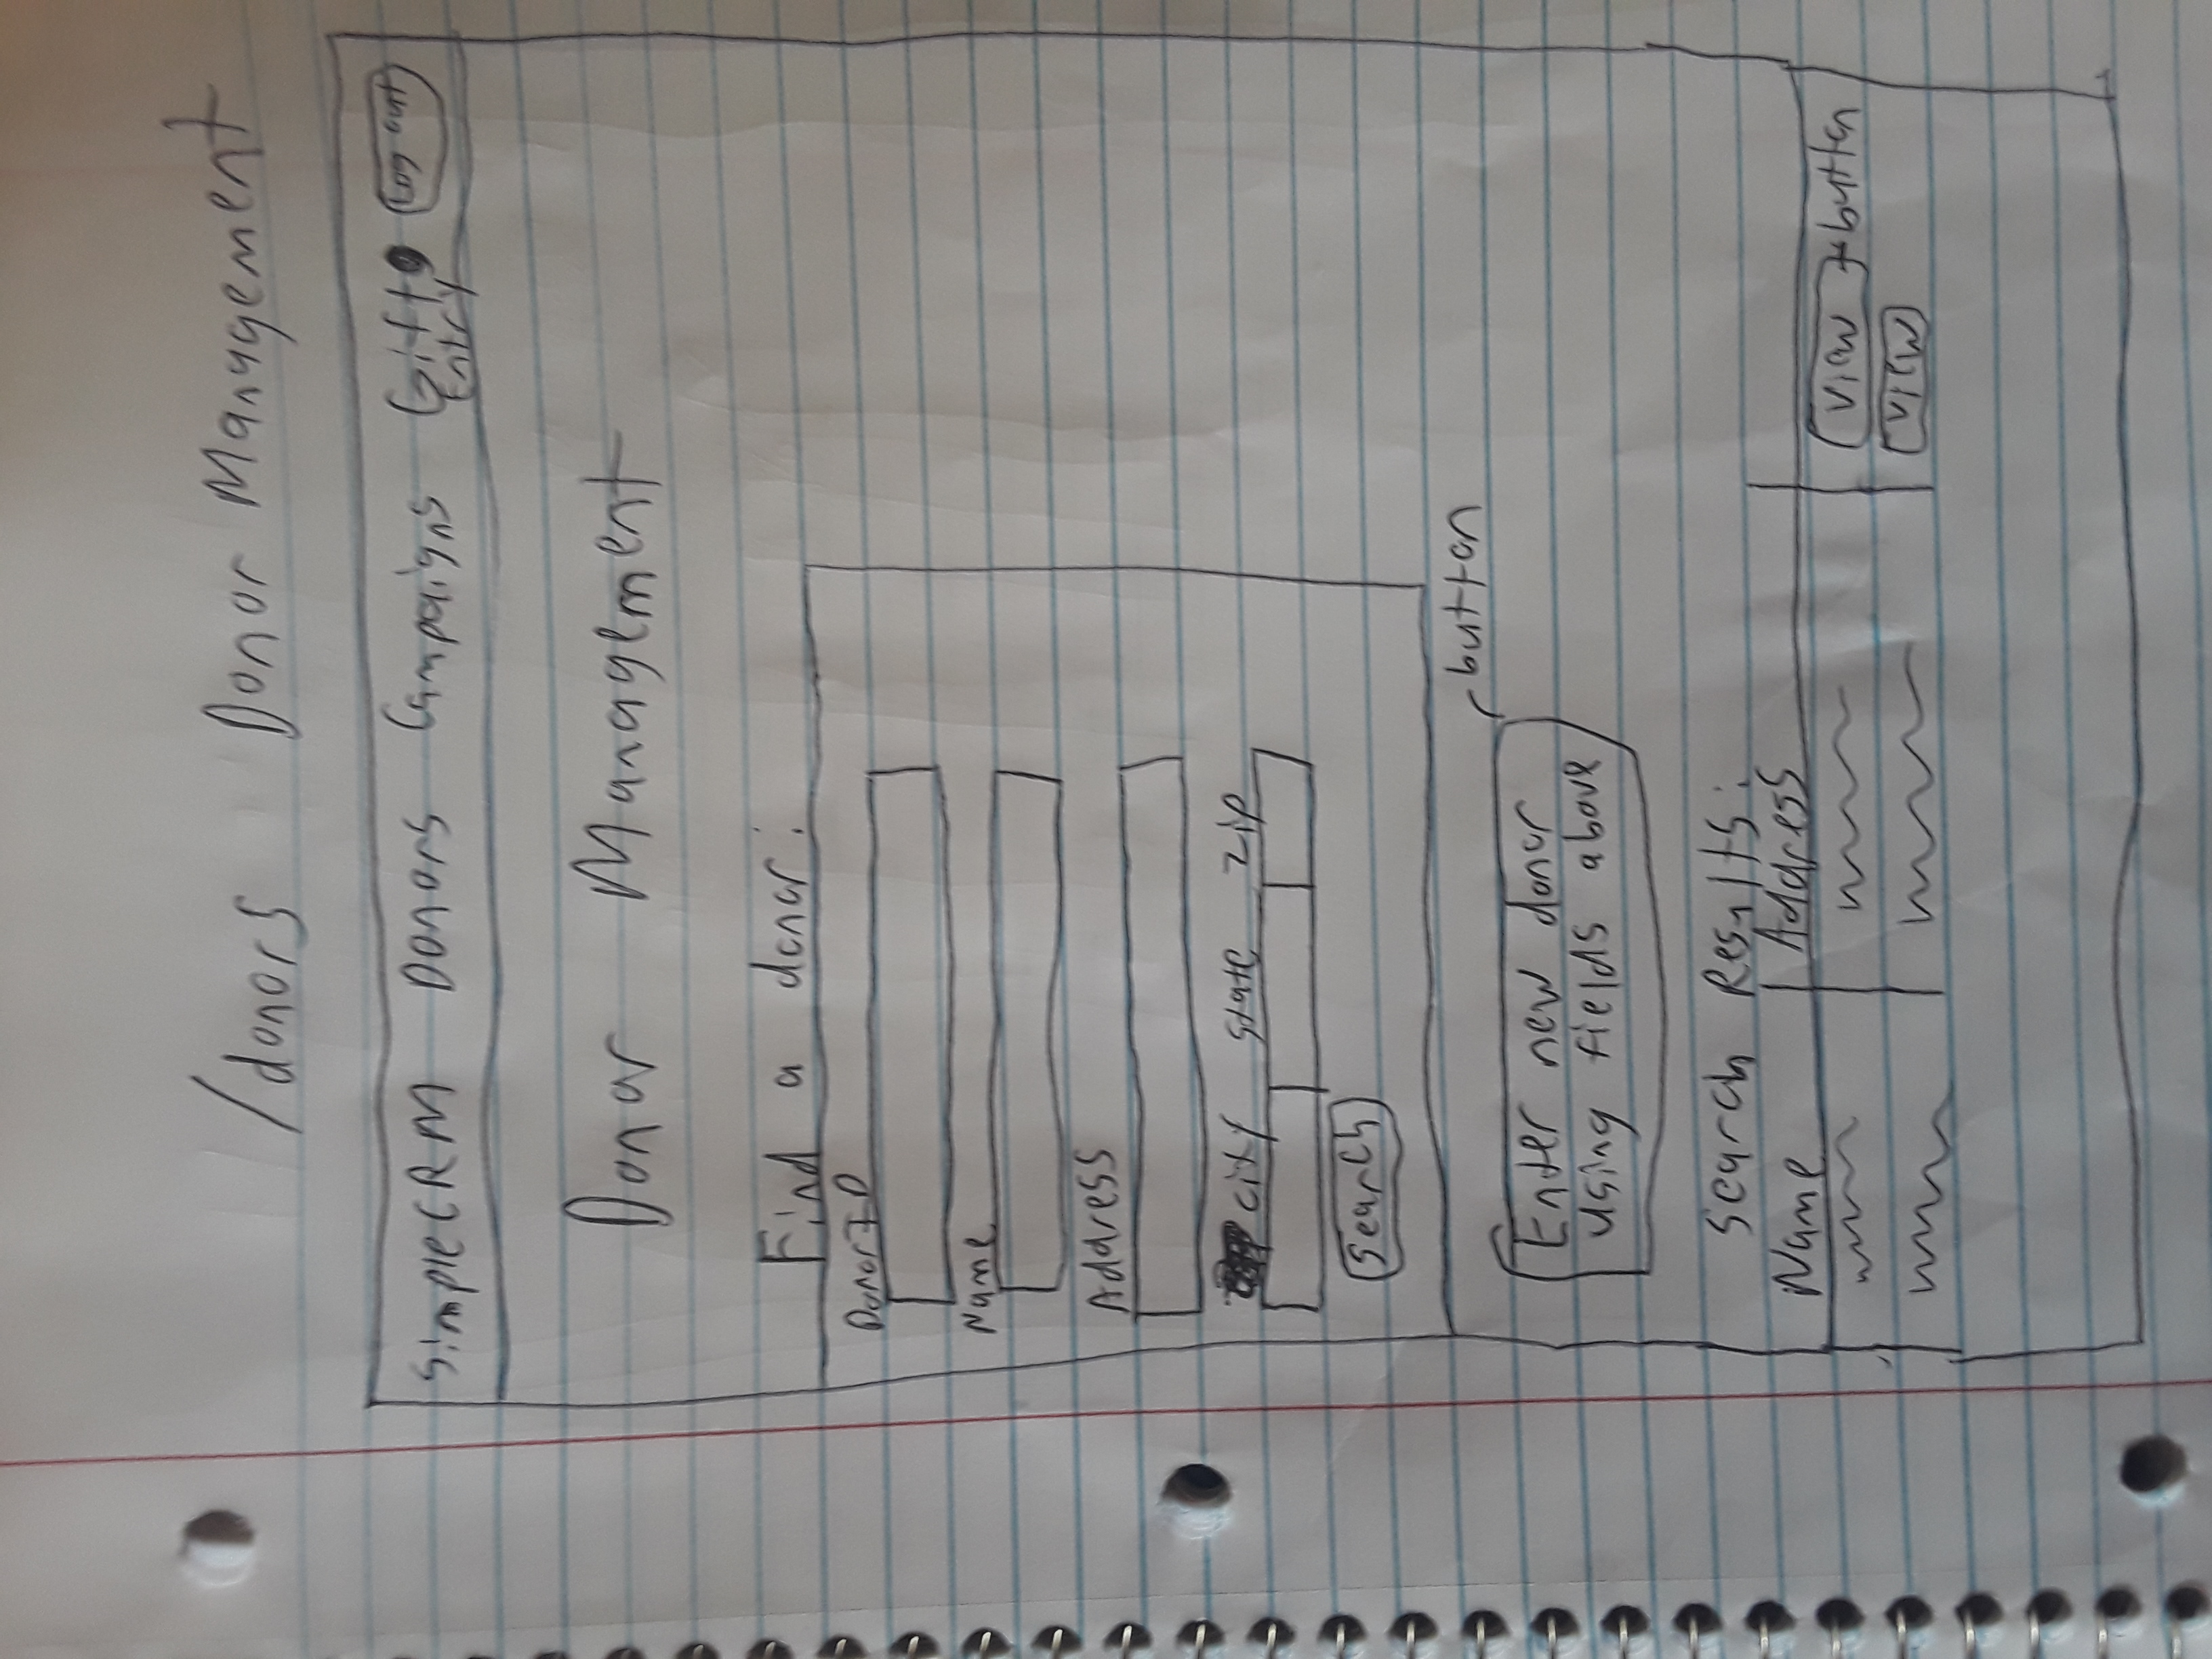 /donors Donor Management
SimpleCRM Donors Campaigns Gift Entry Log out
Donor Management
Find a donor:
Donor ID
Name
Address
city state zip
Search
button
Enter new donor
using fields above
Search Results:
Name Address
View button
View